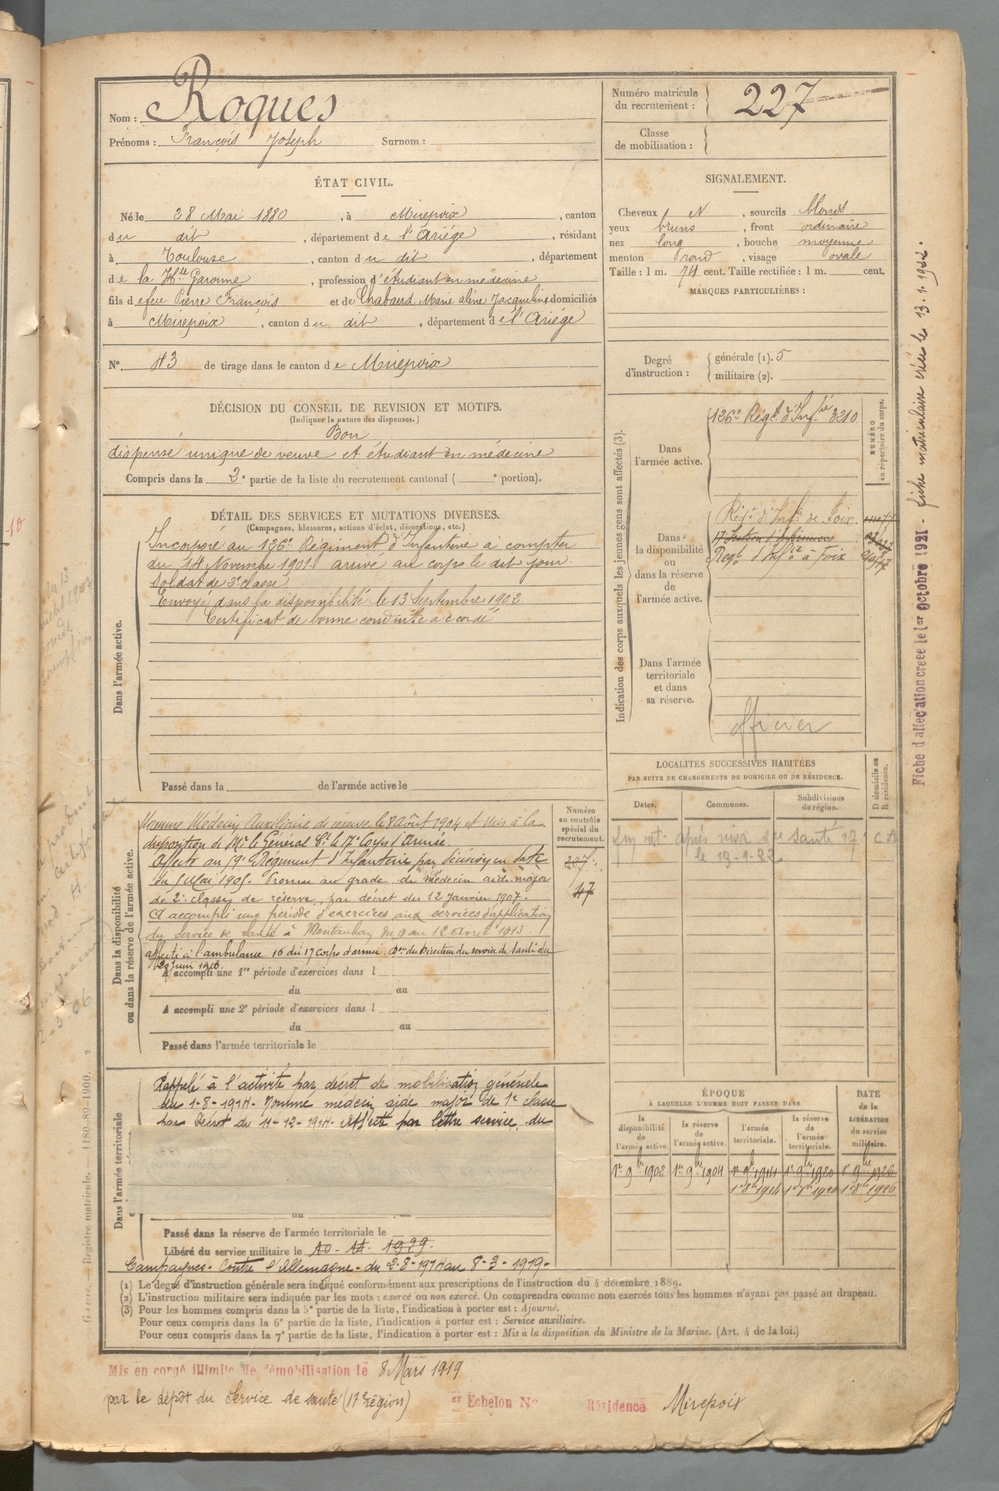 Nom : Roques
Prénoms : François Joseph Surnom :
Numéro matricule du recrutement : 227
Classe de mobilisation :
ÉTAT CIVIL.
Né le 28 Mai 1880, à Mirepoix, canton
du dit, département de l'Ariége, résidant
à Toulouse, canton du dit, département
de la Hte Garonne, profession d'étudiant en médecine
fils de feu Pierre François et de Chabaud, Marie Aline Jacqueline domiciliés
à Mirepoix, canton du dit, département de l'Ariége
N° 43 de tirage dans le canton de Mirepoix
SIGNALEMENT.
Cheveux et, sourcils blonds
yeux bruns, front ordinaire
nez long, bouche moyenne
menton rond, visage ovale
Taille : 1 m. 74 cent. Taille rectifiée : 1 m. cent.
MARQUES PARTICULIÈRES :
Degré d'instruction : générale (1). 5
militaire (2).
DÉCISION DU CONSEIL DE REVISION ET MOTIFS.
(Indiquer la nature des dispenses.)
Bon
dispense unique de veuve et étudiant en médecine
Compris dans la 2e partie de la liste du recrutement cantonal ( e portion).
DÉTAIL DES SERVICES ET MUTATIONS DIVERSES.
(Campagnes, blessures, actions d'éclat, décorations, etc.)
Dans l'armée active.
Incorporé au 126e Régiment d'Infanterie à compter
du 14 Novembre 1901. arrivé au corps le dit jour.
Soldat de 2e classe
Envoyé dans la disponibilité le 13 Septembre 1902.
Certificat de bonne conduite accordé
Passé dans la de l'armée active le
Indication des corps auxquels les jeunes gens sont affectés (3).
NUMÉRO au répertoire du corps.
Dans l'armée active.
126e Régt d'Infie 3210
Dans la disponibilité ou dans la réserve de l'armée active.
Régt d'Infie de Foix
17 Section d'Infirmiers
Régt d'Infie à Foix
Dans l'armée territoriale et dans sa réserve.
officier
LOCALITÉS SUCCESSIVES HABITÉES
PAR SUITE DE CHANGEMENTS DE DOMICILE OU DE RÉSIDENCE.
Dates. Communes. Subdivisions de région. D domicile ou R résidence.
le 13-1-22
Dans la disponibilité ou dans la réserve de l'armée active.
Numéro au contrôle spécial du recrutement.
207
47
Nommé Médecin Auxiliaire de réserve le 8 Août 1904 et mis à la
disposition de Mr le Général Ct le 17e Corps d'Armée.
Affecté au 19e Régiment d'Infanterie par décision en date
du 5 Mai 1905. Promu au grade de médecin aide-major
de 2e classe de réserve, par décret du 12 Janvier 1907.
A accompli une période d'exercices aux services d'application
du Service de Santé à Montauban du 9 au 12 Avril 1913.
Affecté à l'ambulance 16 du 17 corps d'armée. Don du Directeur du service de Santé du
29 juin 1916.
A accompli une 1re période d'exercices dans l
du au
A accompli une 2e période d'exercices dans l
du au
Passé dans l'armée territoriale le
Dans l'armée territoriale
Rappelé à l'activité par décret de mobilisation générale
du 1-8-1914. Nommé médecin aide major de 1e classe
par Décret du 4-12-1914. Affecté par lettre service du
Passé dans la réserve de l'armée territoriale le
Libéré du service militaire le 10-11-1929.
Campagnes. Contre l'Allemagne. du 2-8-1914 au 8-3-1919-
ÉPOQUE
À LAQUELLE L'HOMME DOIT PASSER DANS
la disponibilité de l'armée active. la réserve de l'armée active. l'armée territoriale. la réserve de l'armée territoriale. DATE de la LIBÉRATION du service militaire.
1er 9bre 1902 1er 9bre 1904 1er 9bre 1914 1er 9bre 1920 1er 9bre 1926
1er 8bre 1914 1er 8bre 1920 1er 8bre 1926
(1) Le degré d'instruction générale sera indiqué conformément aux prescriptions de l'instruction du 4 décembre 1889.
(2) L'instruction militaire sera indiquée par les mots : exercé ou non exercé. On comprendra comme non exercés tous les hommes n'ayant pas passé au drapeau.
(3) Pour les hommes compris dans la 5e partie de la liste, l'indication à porter est : Ajourné.
Pour ceux compris dans la 6e partie de la liste, l'indication à porter est : Service auxiliaire.
Pour ceux compris dans la 7e partie de la liste, l'indication à porter est : Mis à la disposition du Ministre de la Marine. (Art. 4 de la loi.)
Mis en congé illimité de démobilisation le 8 Mars 1919
par le dépôt du Service de santé (17 Région)
er Echelon N° Résidence Mirepoix
Fiche d'affectation créée le 1er Octobre 1921 - fiche matriculaire créée le 13.1.1922.
Registre matricule. - 1180-82-1900.